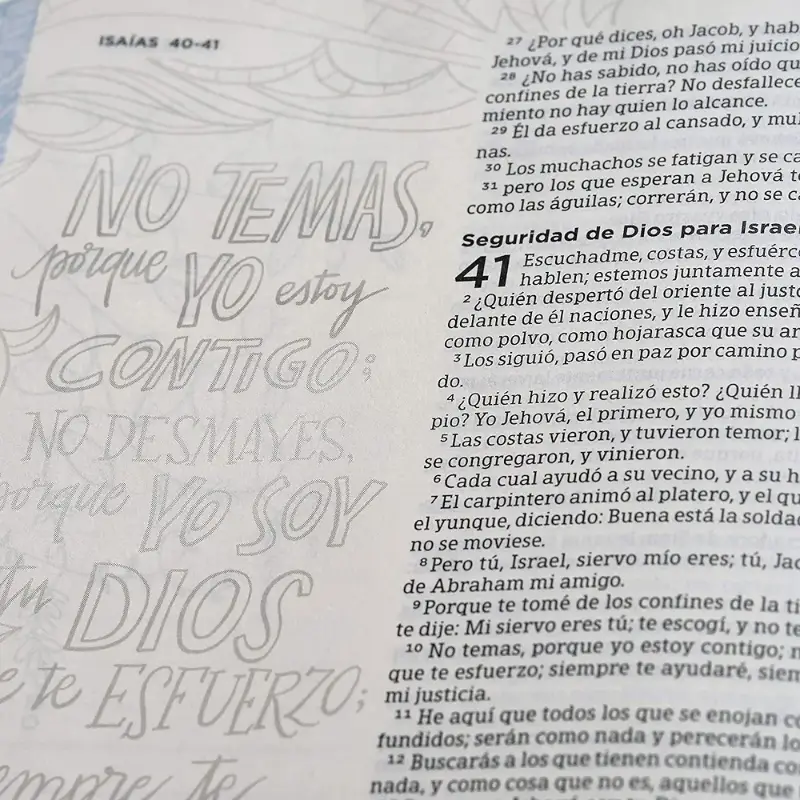 ISAÍAS 40-41
NO TEMAS,
porque YO estoy
CONTIGO;
NO DESMAYES,
porque YO SOY
tu DIOS
te ESFUERZO;
te
27 ¿Por qué dices, oh Jacob, y
Jehová, y de mi Dios pasó mi juicio
28 ¿No has sabido, no has oído
confines de la tierra? No
miento no hay quien lo alcance.
29 Él da esfuerzo al cansado, y
nas.
30 Los muchachos se fatigan y se
31 pero los que esperan a Jehová
como las águilas; correrán, y no se
Seguridad de Dios para Israel
41 Escuchadme, costas, y
hablen; estemos juntamente
2 ¿Quién despertó del oriente al justo
delante de él naciones, y le hizo
como polvo, como hojarasca que su
3 Los siguió, pasó en paz por camino
do.
4 ¿Quién hizo y realizó esto? ¿Quién
pio? Yo Jehová, el primero, y yo mismo
5 Las costas vieron, y tuvieron temor;
se congregaron, y vinieron.
6 Cada cual ayudó a su vecino, y a su
7 El carpintero animó al platero, y el
el yunque, diciendo: Buena está la
no se moviese.
8 Pero tú, Israel, siervo mío eres; tú,
de Abraham mi amigo.
9 Porque te tomé de los confines de la
te dije: Mi siervo eres tú; te escogí, y no
10 No temas, porque yo estoy contigo;
que te esfuerzo; siempre te ayudaré,
mi justicia.
11 He aquí que todos los que se enojan
fundidos; serán como nada y perecerán
12 Buscarás a los que tienen contienda
nada, y como cosa que no es, aquellos que